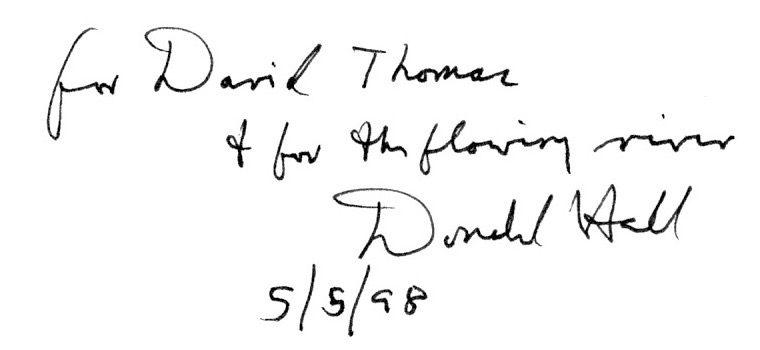 for David Thomas
& for the flowing river
Donald Hall
5/5/98